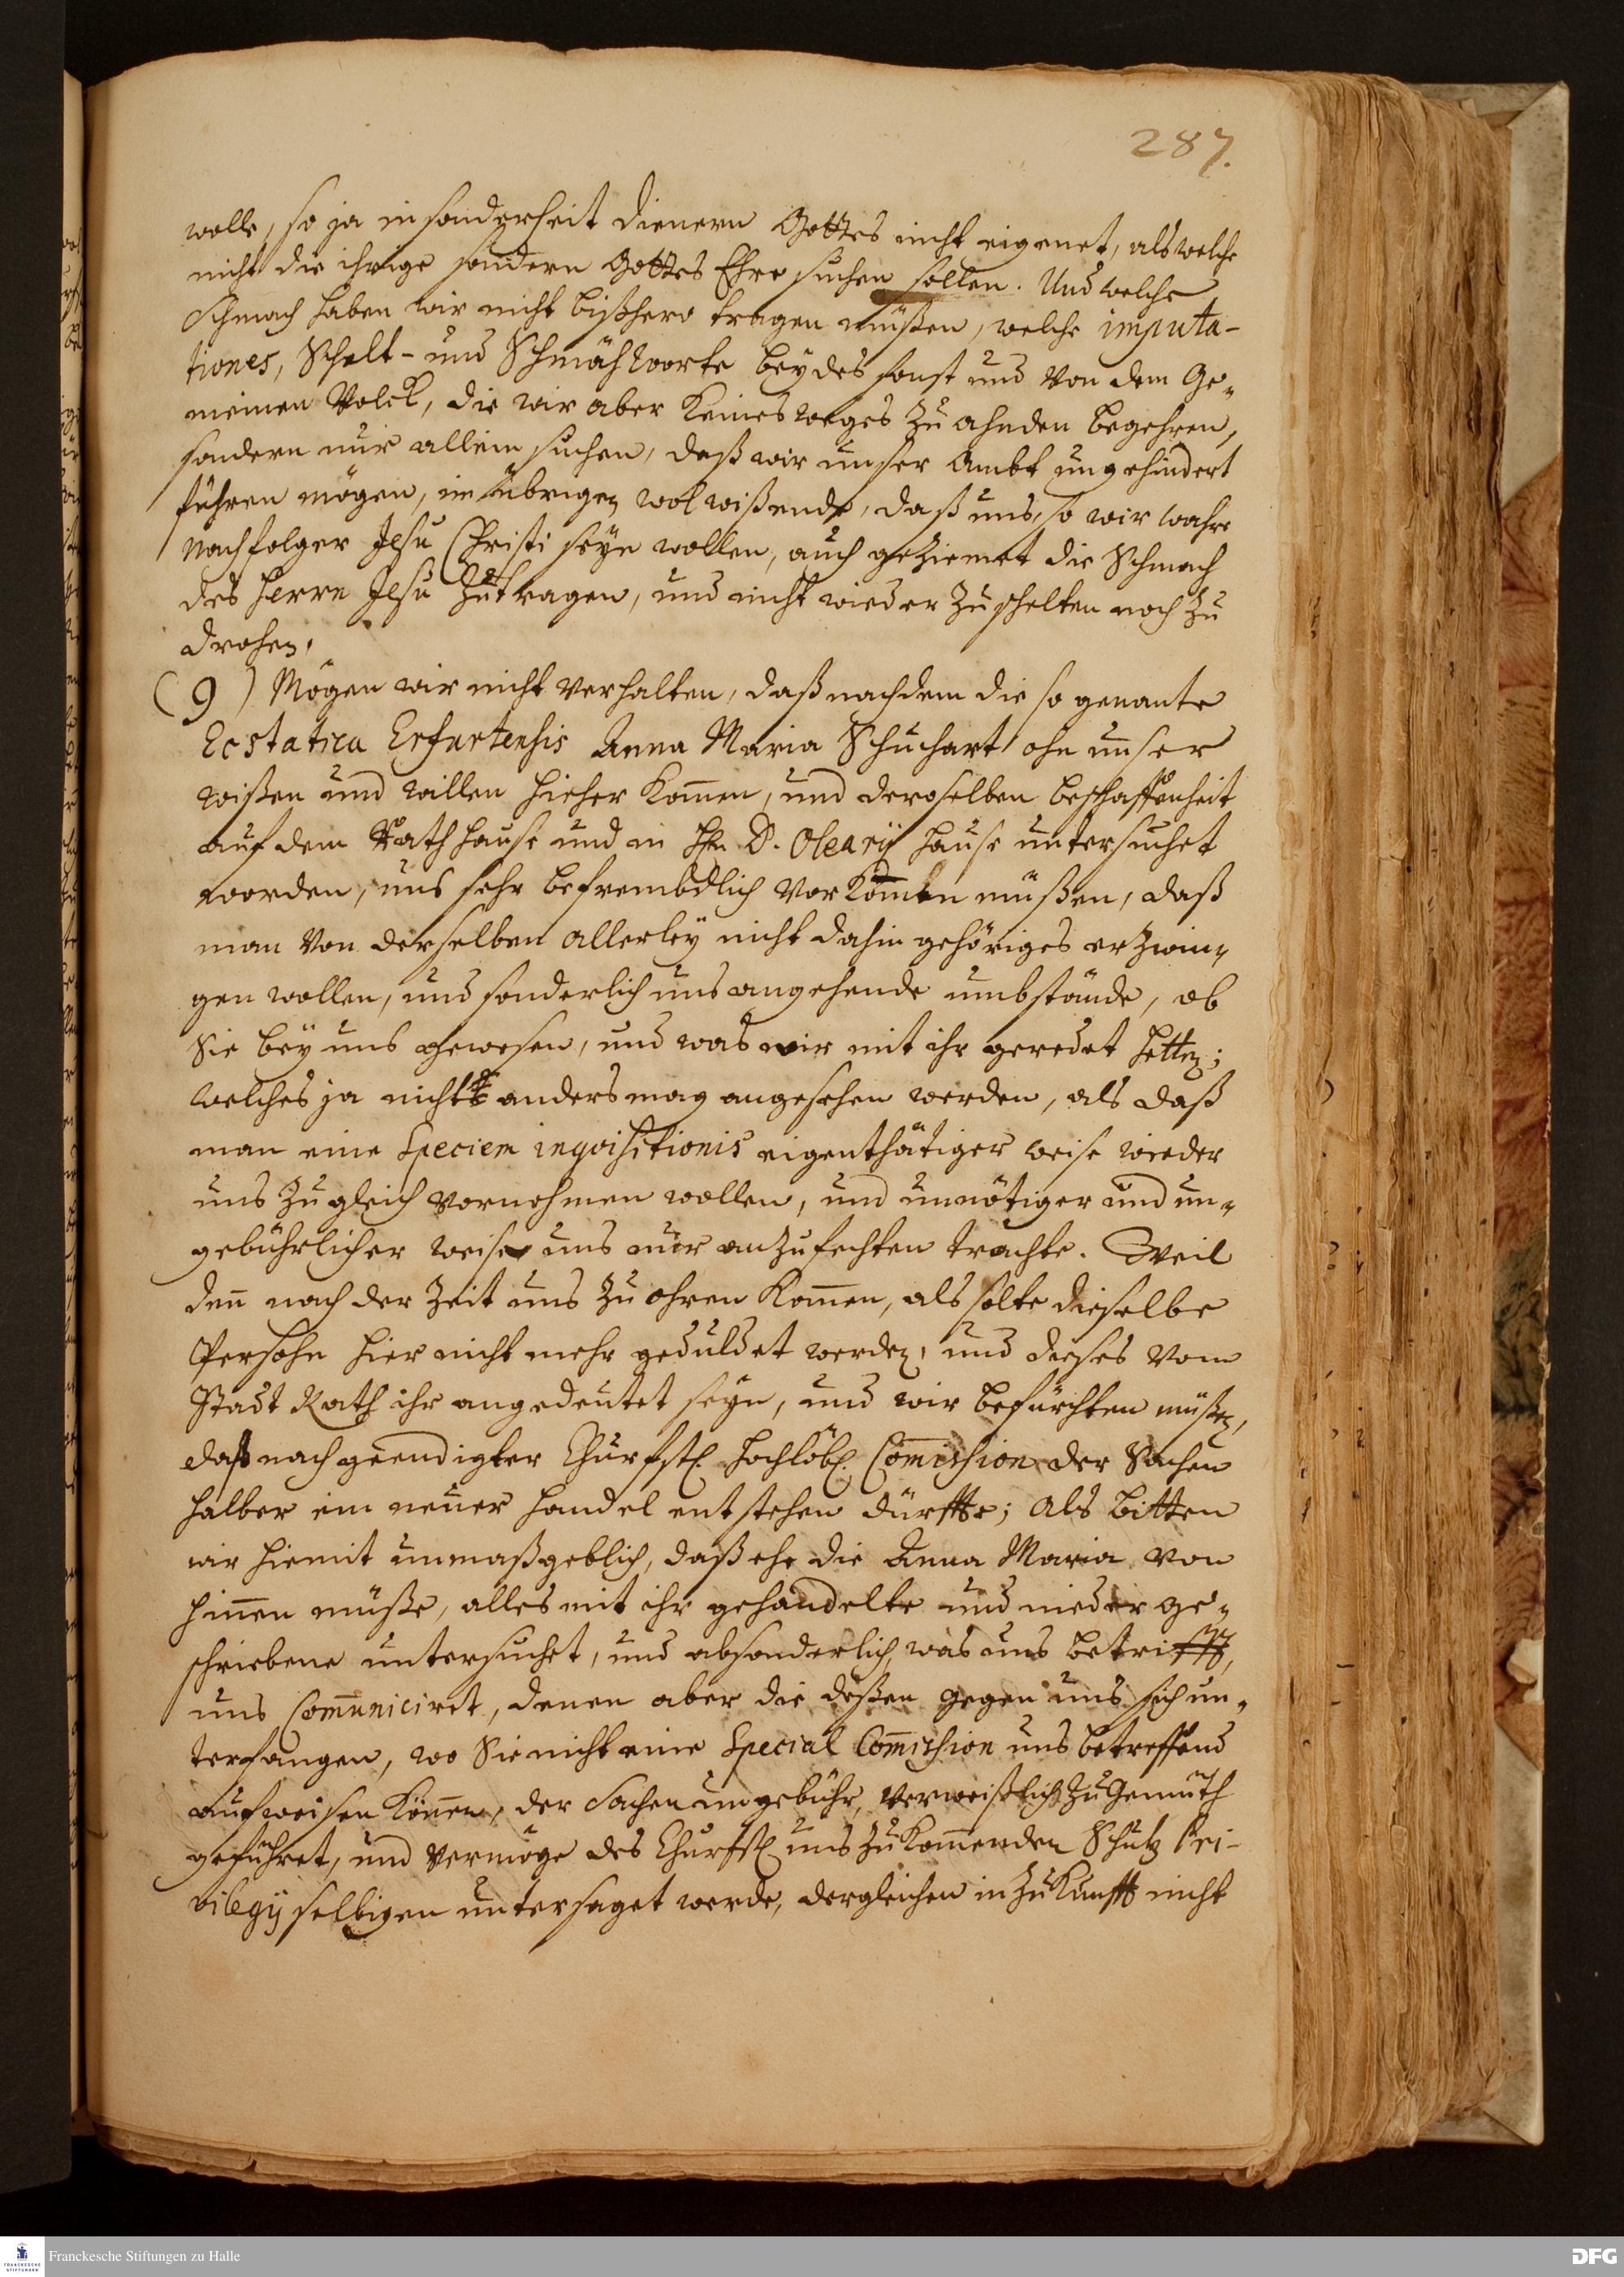 287.
wolle, so ja insonderheit dienern Gottes nicht eigenet, als welche
nicht die ihrige sondern Gottes Ehre suchen sollen. Und welche
Schmach haben wir nicht bißhero tragen müßen, welche imputa-
tiones, Schelt- und Schmähworte beydes sonst und von dem Ge-
meinen Volck, die wir aber keines weges zu ahnden begehren,
sondern nur allein suchen, daß wir unser Ambt ungehindert
führen mögen, im übrigen wol wißende, daß uns, so wir wahre
Nachfolger Jesu Christi seyn wollen, auch geziemet die Schmach
des Herrn Jesu zu tragen, und nicht wieder zu schelten noch zu
drohen.
(9) Mögen wir nicht verhalten, daß nachdem die so genante
Ecstatica Erfurtensis Anna Maria Schuchart ohn unser
wißen und willen hieher kom̄en, und deroselben beschaffenheit
auf dem Rathhause und in Hn. D. Olearij Hause untersuchet
worden, uns sehr befrembdlich vorkom̄en müßen, daß
man von derselben allerley nicht dahin gehöriges erzwin-
gen wollen, und sonderlich uns angehende umbstände, ob
Sie bey uns gewesen, und was wir mit ihr geredet hetten;
welches ja nicht anders mag angesehen werden, als daß
man eine Speciem inqvisitionis eigenthätiger weise wieder
uns zugleich vornehmen wollen, und unnötiger und un-
gebührlicher weise uns nur anzufechten trachte. Weil
den̄ nach der Zeit uns zu ohren kom̄en, als solte dieselbe
Persohn hier nicht mehr geduldet werden, und dieses vom
Stadt Rath ihr angedeutet seyn, und wir befürchten müßen,
daß nach geendigter Churfstl. Hochlöbl. Com̄ission der Sachen
halber ein neuer Handel entstehen dürffte; Als bitten
wir hiemit unmaßgeblich, daß ehe die Anna Maria von
hin̄en müße, alles mit ihr gehandelte und nieder ge-
schriebene untersuchet, und absonderlich, was uns betrifft,
uns Com̄uniciret, denen aber die deßen gegen uns sich un-
terfangen, wo Sie nicht eine Special Com̄ission uns betreffend
aufweisen kön̄en, der Sachen ungebühr, verweißlich zu Gemüth
geführet, und vermöge des Churfstl. uns zukom̄enden Schutz Pri-
vilegij selbigen untersaget werde, dergleichen in Zukunfft nicht
Franckesche Stiftungen zu Halle
FRANCKESCHE STIFTUNGEN
DFG